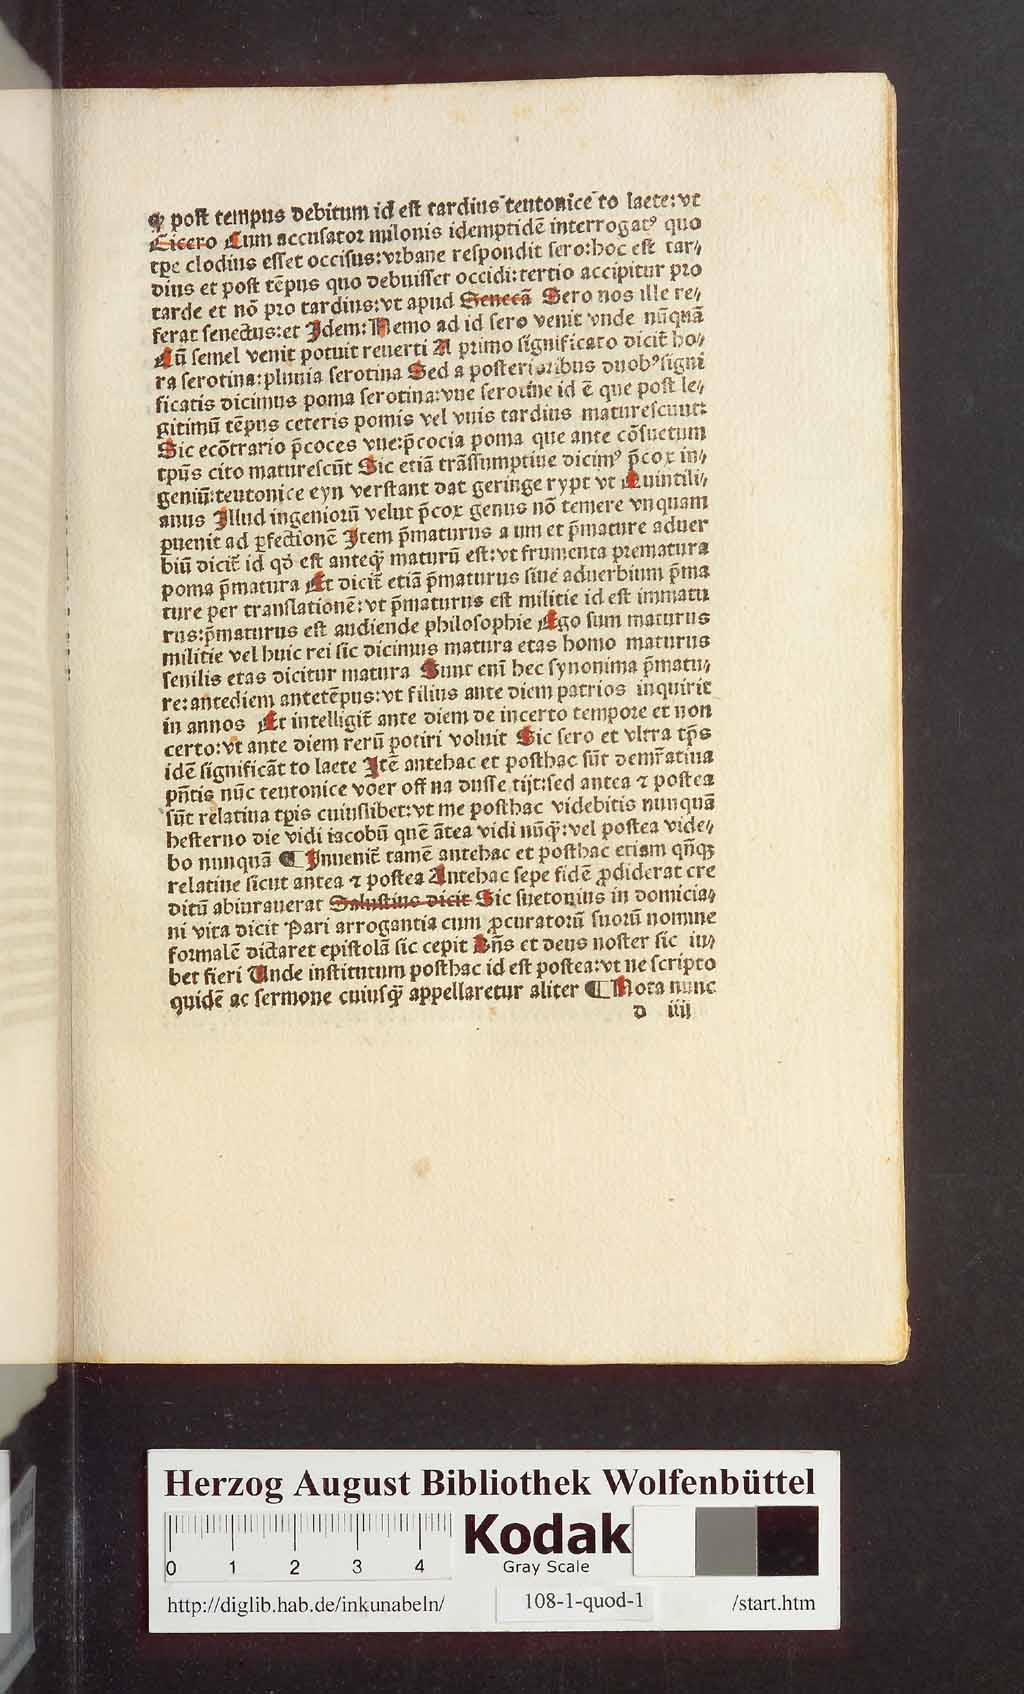 ꝙ post tempus debitum id est tardius teutonice to laete: vt
Cicero Cum accusator milonis idemptidē interrogatꝰ quo
tp̄e clodius esset occisus: vrbane respondit sero: hoc est tar⸗
dius et post tēpus quo debuisset occidi: tertio accipitur pro
tarde et nō pro tardius: vt apud Senecā Sero nos ille re⸗
ferat senectus: et Idem: Nemo ad id sero venit vnde nūquā
Cū semel venit potuit reuerti A primo significato dicit̄ ho⸗
ra serotina: pluuia serotina Sed a posterioribus duobꝰ signi
ficatis dicimus poma serotina: vue serotine id ē que post le⸗
gitimū tēpus ceteris pomis vel vuis tardius maturescunt:
Sic ecōtrario p̄coces vue: p̄cocia poma que ante cōsuetum
tpūs cito maturescūt Sic etiā trāssumptiue dicimꝰ p̄cox in⸗
geniū: teutonice eyn verstant dat geringe rypt vt Quintili⸗
anus Illud ingeniorū velut p̄cox genus nō temere vnquam
ꝑuenit ad ꝑfectionē Item p̄maturus a um et p̄mature aduer
biū dicit̄ id qd̄ est anteq̄ꝫ maturū est: vt frumenta prematura
poma p̄matura Et dicit̄ etiā p̄maturus siue aduerbium p̄ma
ture per translationē: vt p̄maturus est militie id est immatu
rus: p̄maturus est audiende philosophie Ego sum maturus
militie vel huic rei sic dicimus matura etas homo maturus
senilis etas dicitur matura Sunt enī hec synonima p̄matu⸗
re: antediem antetēpus: vt filius ante diem patrios inquirit
in annos Et intelligit̄ ante diem de incerto tempore et non
certo: vt ante diem rerū potiri voluit Sic sero et vltra tp̄s
idē significāt to laete Itē antehac et posthac sūt demr̄atiua
pn̄tis nūc teutonice voer off na dusse tijt: sed antea ⁊ postea
sūt relatiua tp̄is cuiuslibet: vt me posthac videbitis nunquā
hesterno die vidi iacobū quē ātea vidi nūq̄ꝫ: vel postea vide⸗
bo nunquā ¶ Inuenit̄ tamē antehac et posthac etiam qn̄qꝫ
relatiue sicut antea ⁊ postea Antehac sepe fidē ꝓdiderat cre
ditū abiurauerat Salustius dicit Sic suetonius in domicia⸗
ni vita dicit Pari arrogantia cum ꝓcuratorū suorū nomine
formalē dictaret epistolā sic cepit Dn̄s et deus noster sic iu⸗
bet fieri Unde institutum posthac id est postea: vt ne scripto
quidē ac sermone cuiusq̄ꝫ appellaretur aliter ¶ Nota nunc
d iiij
Herzog August Bibliothek Wolfenbüttel
0 1 2 3 4
Kodak
Gray Scale
http://diglib.hab.de/inkunabeln/ 108-1-quod-1 /start.htm